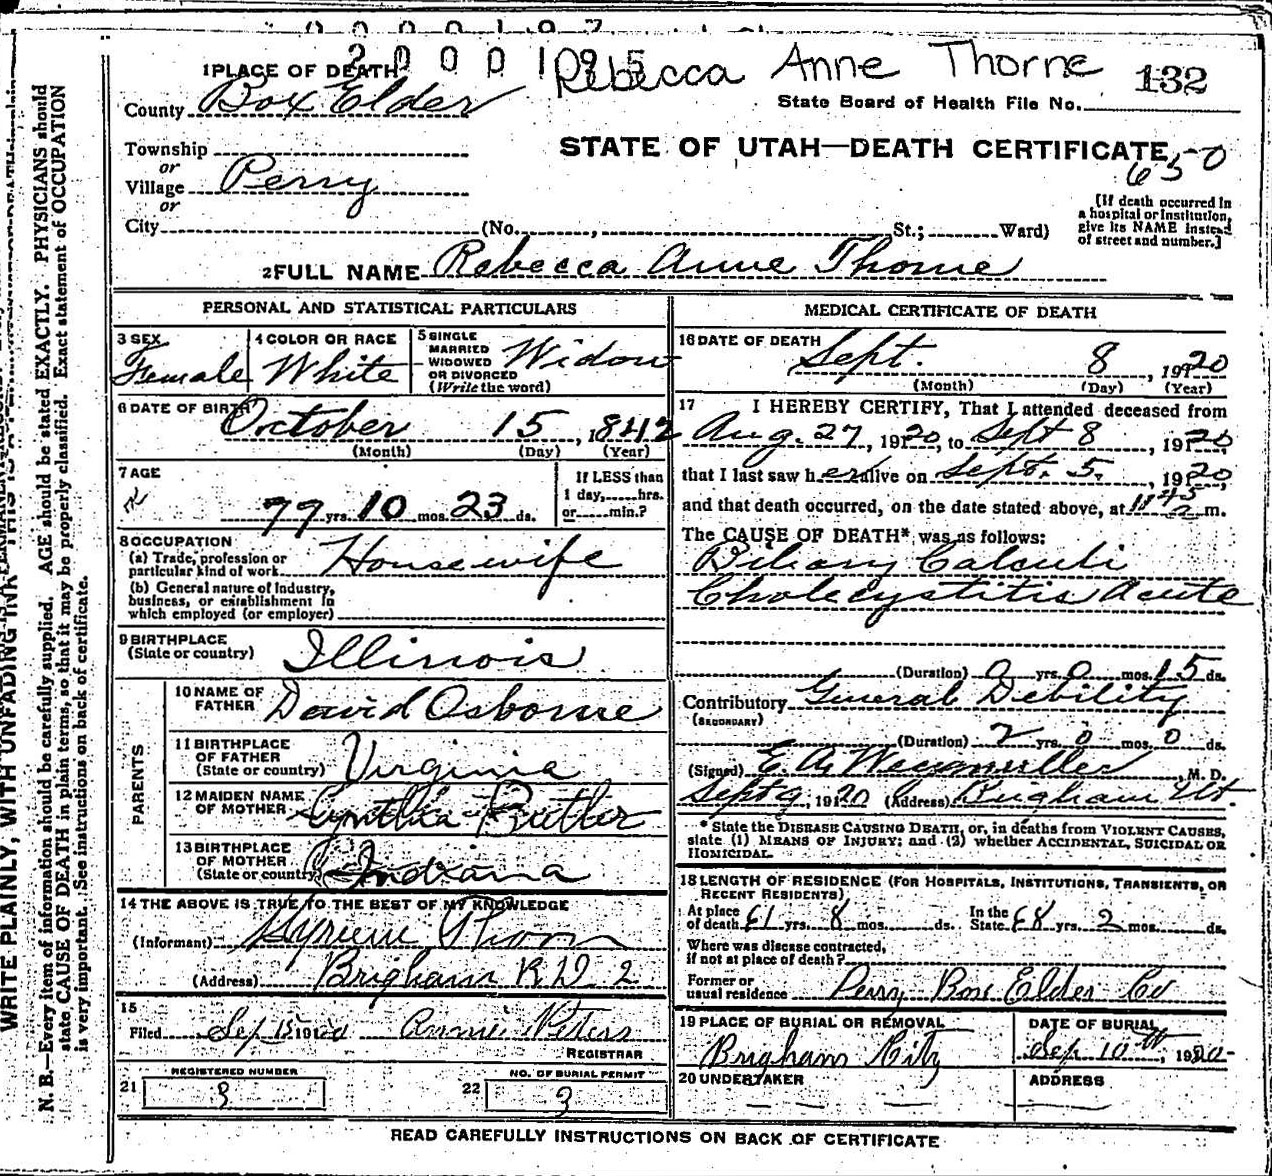 2000195
Rebecca Anne Thorne 132
1 PLACE OF DEATH
County Box Elder
State Board of Health File No.
Township
or
Village Perry
or
City (No. , St.; Ward)
STATE OF UTAH—DEATH CERTIFICATE
650
[If death occurred in
a hospital or institution,
give its NAME instead
of street and number.]
2 FULL NAME Rebecca Anne Thorne
PERSONAL AND STATISTICAL PARTICULARS
3 SEX
Female
4 COLOR OR RACE
White
5 SINGLE
MARRIED
WIDOWED
OR DIVORCED
(Write the word)
Widow
6 DATE OF BIRTH
October 15, 1842
(Month) (Day) (Year)
7 AGE
77 yrs. 10 mos. 23 ds.
If LESS than
1 day, hrs.
or min.?
8 OCCUPATION
(a) Trade, profession or
particular kind of work
Housewife
(b) General nature of industry,
business, or establishment in
which employed (or employer)
9 BIRTHPLACE
(State or country)
Illinois
PARENTS
10 NAME OF
FATHER
David Osborne
11 BIRTHPLACE
OF FATHER
(State or country)
Virginia
12 MAIDEN NAME
OF MOTHER
Cynthia Butler
13 BIRTHPLACE
OF MOTHER
(State or country)
Indiana
14 THE ABOVE IS TRUE TO THE BEST OF MY KNOWLEDGE
(Informant)
(Address) Brigham R.D. 2
15
Filed Sep 15 1920 Annie Peters
REGISTRAR
REGISTERED NUMBER
21 3
NO. OF BURIAL PERMIT
22 3
MEDICAL CERTIFICATE OF DEATH
16 DATE OF DEATH
Sept. 8, 1920
(Month) (Day) (Year)
17 I HEREBY CERTIFY, That I attended deceased from
Aug. 27, 1920, to Sept 8, 1920,
that I last saw her alive on Sept. 5, 1920,
and that death occurred, on the date stated above, at 11 45 m.
The CAUSE OF DEATH* was as follows:
Biliary Calculi
Cholecystitis Acute
(Duration) 0 yrs. 0 mos. 15 ds.
Contributory General Debility
(SECONDARY)
(Duration) 2 yrs. 0 mos. 0 ds.
(Signed) E. A. , M. D.
Sept 9, 1920 (Address) Brigham Ut.
* State the DISEASE CAUSING DEATH, or, in deaths from VIOLENT CAUSES,
state (1) MEANS OF INJURY; and (2) whether ACCIDENTAL, SUICIDAL OR
HOMICIDAL.
18 LENGTH OF RESIDENCE (FOR HOSPITALS, INSTITUTIONS, TRANSIENTS, OR
RECENT RESIDENTS)
At place
of death 61 yrs. 8 mos. ds.
In the
State 68 yrs. 2 mos. ds.
Where was disease contracted,
if not at place of death?
Former or
usual residence Perry Box Elder Co
19 PLACE OF BURIAL OR REMOVAL
Brigham City
DATE OF BURIAL
Sep. 10th, 1920
20 UNDERTAKER
ADDRESS
READ CAREFULLY INSTRUCTIONS ON BACK OF CERTIFICATE
WRITE PLAINLY, WITH UNFADING INK
N. B.—Every item of information should be carefully supplied. AGE should be stated EXACTLY. PHYSICIANS should
state CAUSE OF DEATH in plain terms, so that it may be properly classified. Exact statement of OCCUPATION
is very important. See instructions on back of certificate.